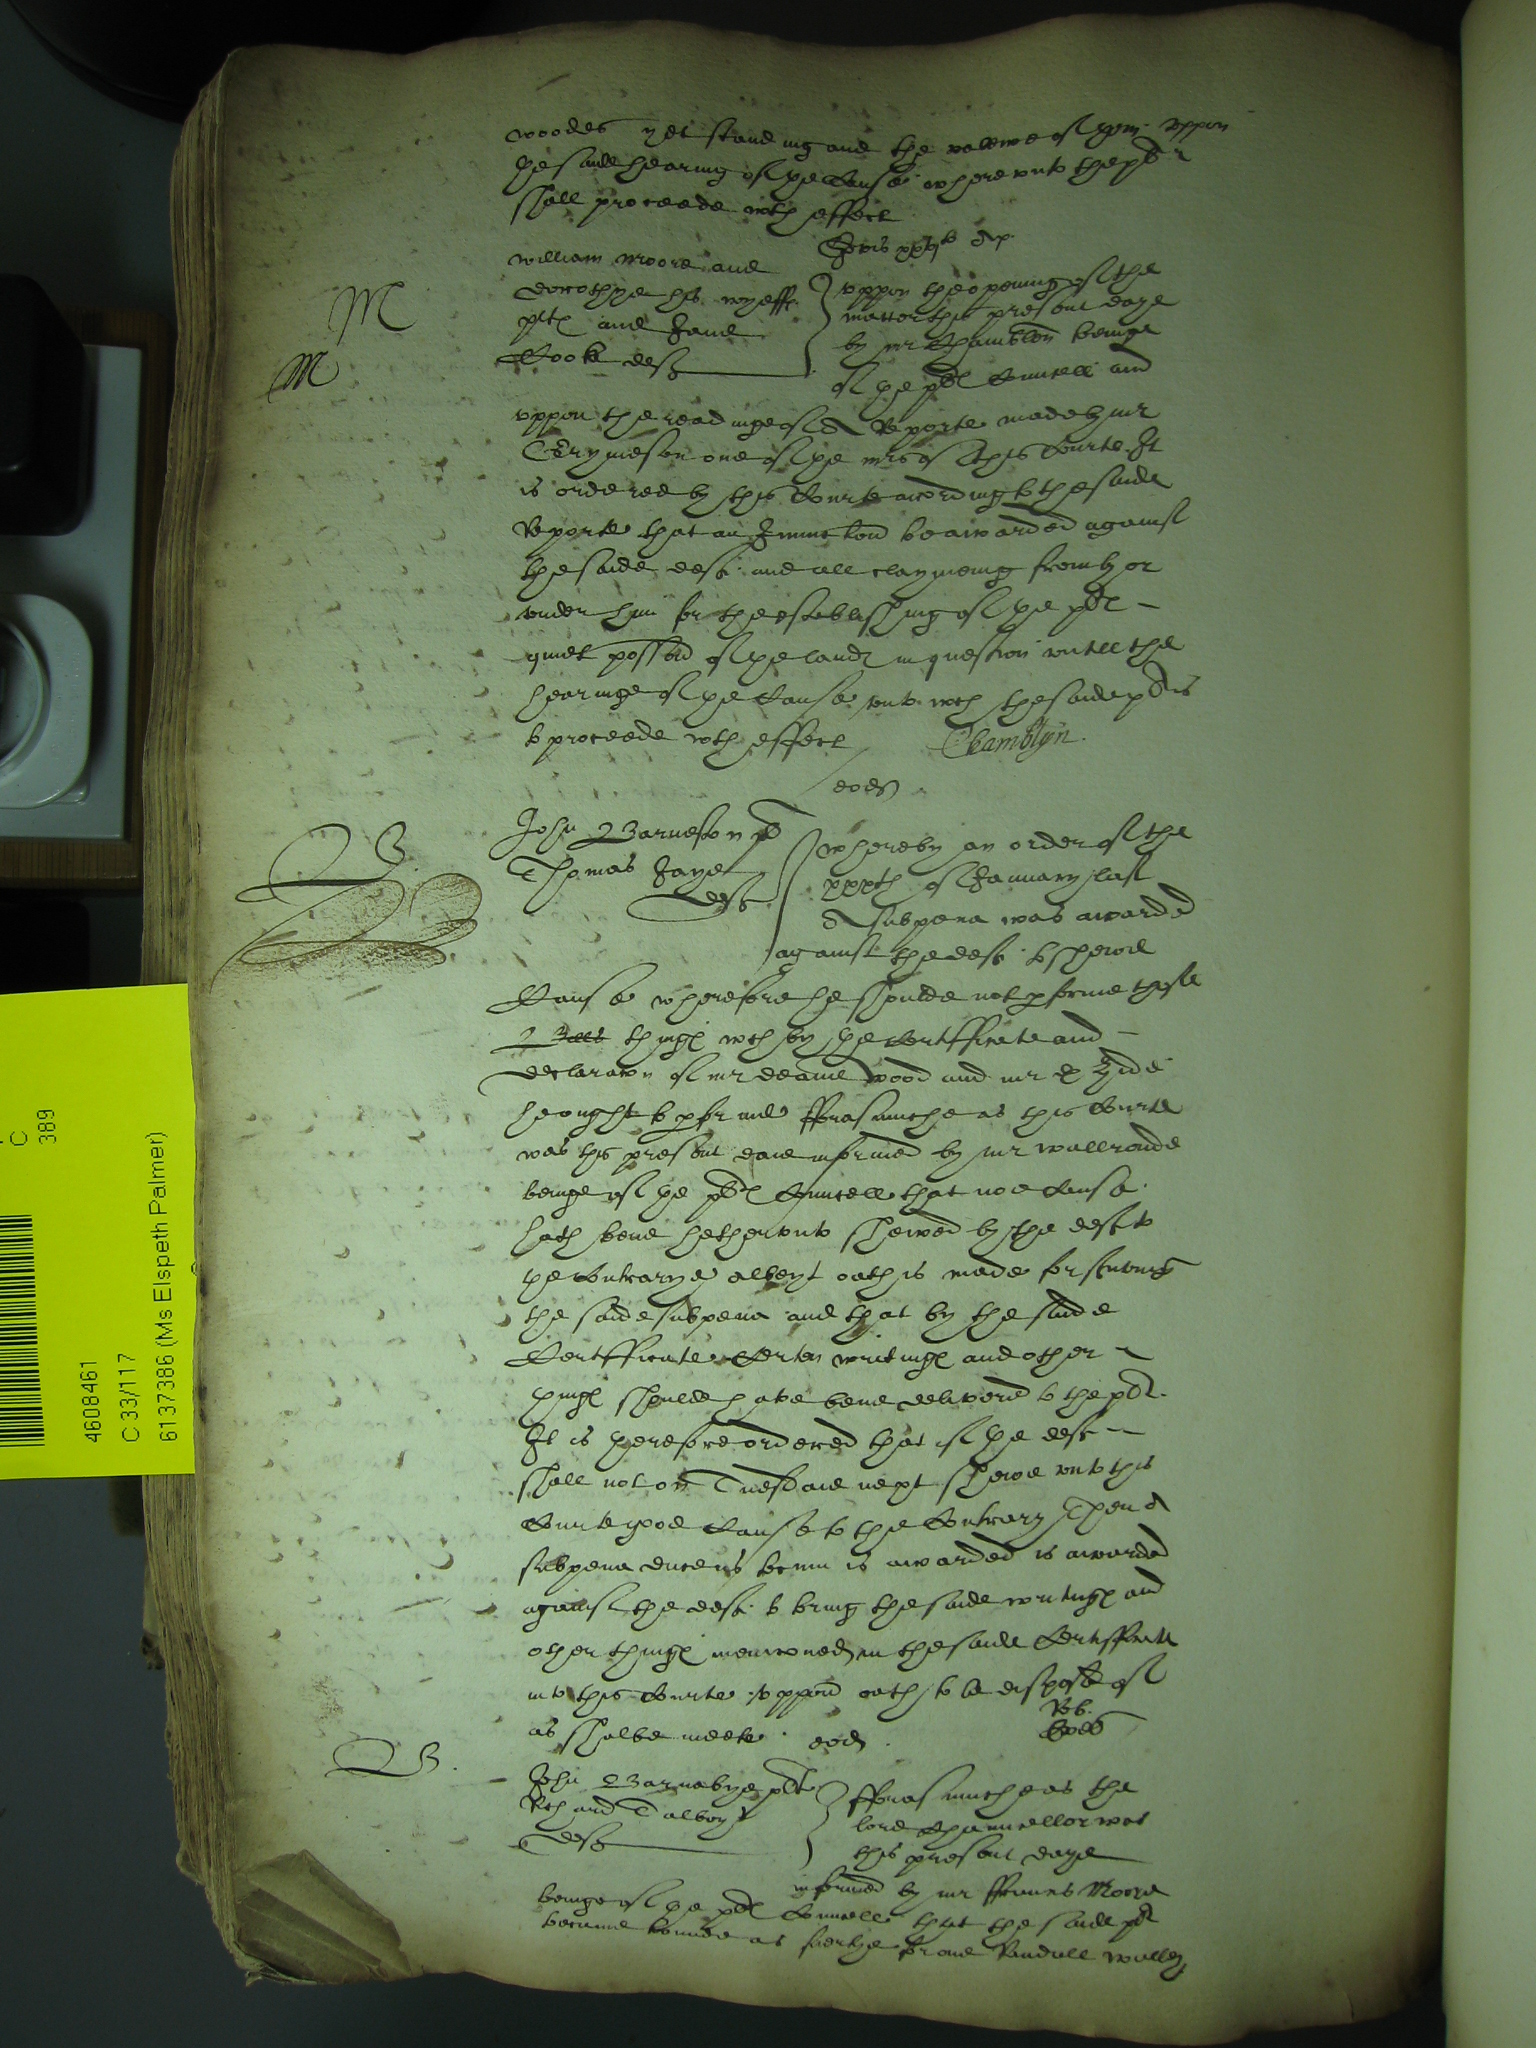 woodes yet standing and the vallewe of them uppon
the saide hearing of the Cause wherevnto the plt
shall proceede wth effect
Jovis
william Moore and
Dorothye his wyeffe
plts and Jane
Cook deft
M
M
uppon the opening of the
matter this present daye
by mr Chamblen beinge
of the plts Councell and
uppon the readinge of A Reporte made by mr
one of the mrs of this Courte It
is ordered by this Courte according to the saide
Reporte that an Iniunccion be awarded against
the saide deft and all claymeing from by or
under him for the establishing of the plts
quiet possession of the lands in question untill the
hearinge of the Cause unto wch the saide plt is
to proceede wth effect
Chamblyn
eodem
B
John Barneston plt
Thomas Jaye
deft
whereby an order of the
xxxth of January last
A subpena was awarded
against the deft to shewe
Cause wherefore he shoulde not performe those
things wch by the Certifficate and
declaracon of mr deane wood and mr
he ought to performe fforasmuche as this Courte
was this present daie informed by mr wallronde
beinge of the plts Councell that noe Cause
hath bene hetherunto shewed by the deft to
the Contrarye albeyt oath is made for serving
the saide subpena and that by the saide
Certifficate Certen writings and other
things shoulde have bene delivered to the plt.
It is therefore ordered that if the deft
shall not on Tuesdaie next shewe unto this
Courte good Cause to the Contrary Then A
subpena ducens tecum is awarded is awarded
against the deft to bring the saide writings and
other things mencioned in the saide Certifficate
into this Courte uppon oath to be disposed of
as shalbe meete
eodem
B.
John Barnabye plt
Richard Talboys
deft
fforasmuche as the
lord Chauncellor was
this present daye
informed by mr ffrauncis Moore
beinge of the plts Councell that the saide plt
became bounde as suertye for one Randull
C
389
4608461
C 33/117
6137386 (Ms Elspeth Palmer)